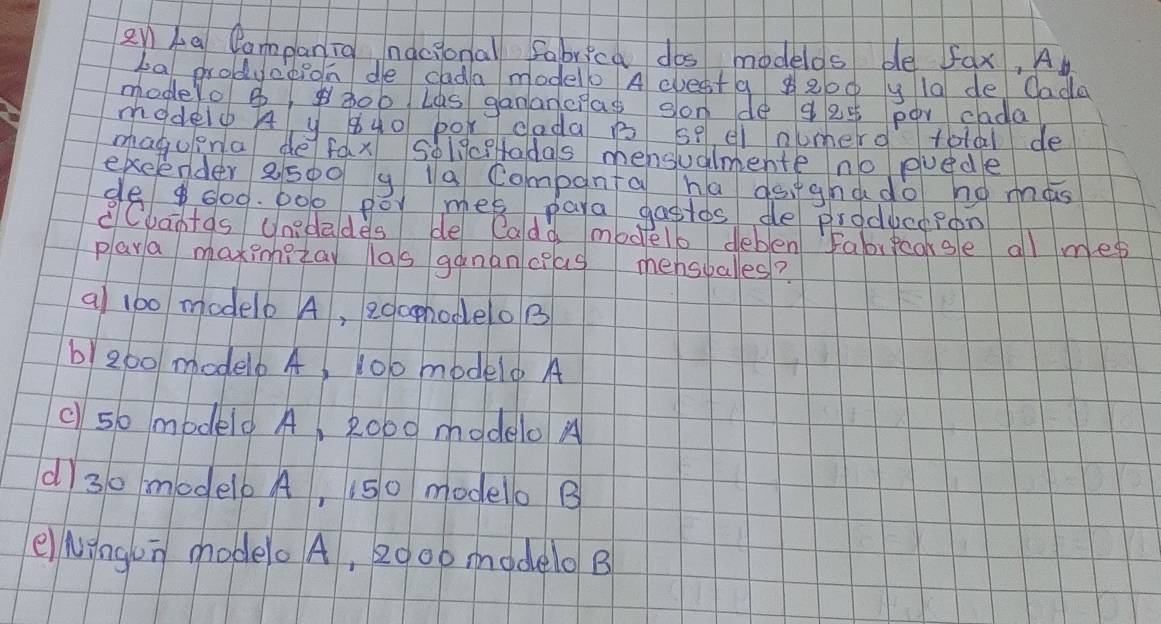 2) La Compania nacional fabrica dos modelos de fax, A y
La producción de cada modelo A cuesta $200 y la de Cada
modelo B, $300, Las ganancias son de $25 por cada
modelo A y $40 por cada B si el numero total de
maquina de fax solicitadas mensualmente no puede
excender 2500 y la Compania ha asignado no mas
de $ 600.000 por mes para gastos de produccion
¿Cuantas Unidades de Cada modelo deben Fabricarse al mes
para maximizar las ganancias mensuales?
a) 100 modelo A, modelo B
b) 200 modelo A, 100 modelo A
c) 50 modelo A, 2000 modelo A
d) 30 modelo A, 150 modelo B
e) Ningun modelo A, 2000 modelo B